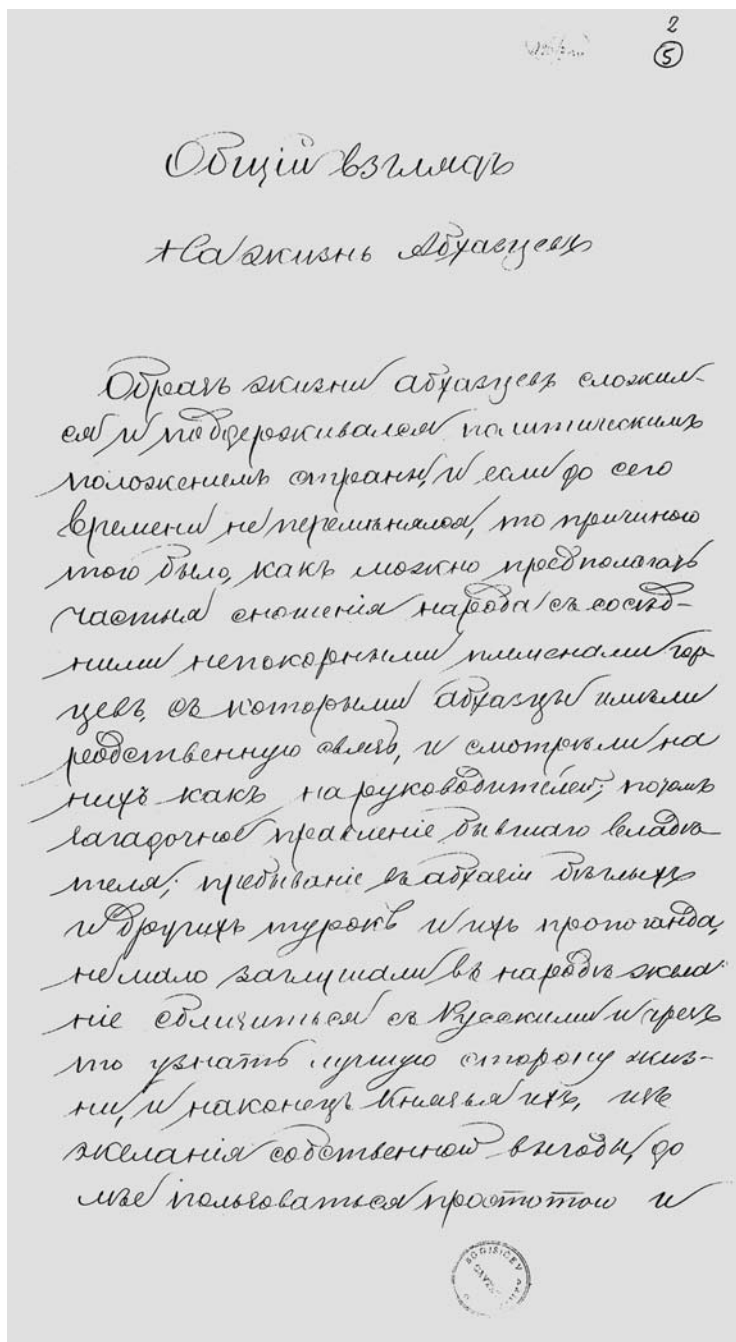 2
5
Общій взглядъ
На жизнь Абхазцевъ
Образъ жизни абхазцевъ сложил-
ся и поддерживался политическимъ
положеніемъ страны, и если до сего
времени не перемѣнялся, то причиною
того было, какъ можно предполагать
частыя сношенія народа съ сосѣд-
ними непокорными племенами гор
цевъ, съ которыми абхазцы имѣли
родственную связь, и смотрѣли на
нихъ какъ на руководителей; потомъ
загадочное правленіе бывшаго владѣ-
теля; пребываніе въ абхазіи бѣглыхъ
и другихъ турокъ и ихъ пропоганда,
не мало заглушали въ народѣ жела-
ніе сблизиться съ Русскими и чрезъ
то узнать лучшую сторону жиз-
ни, и наконецъ Князья ихъ, изъ
желанія собственной выгоды, до
лѣе пользоваться простотою и
BOGISIĆEV
CAVTAT